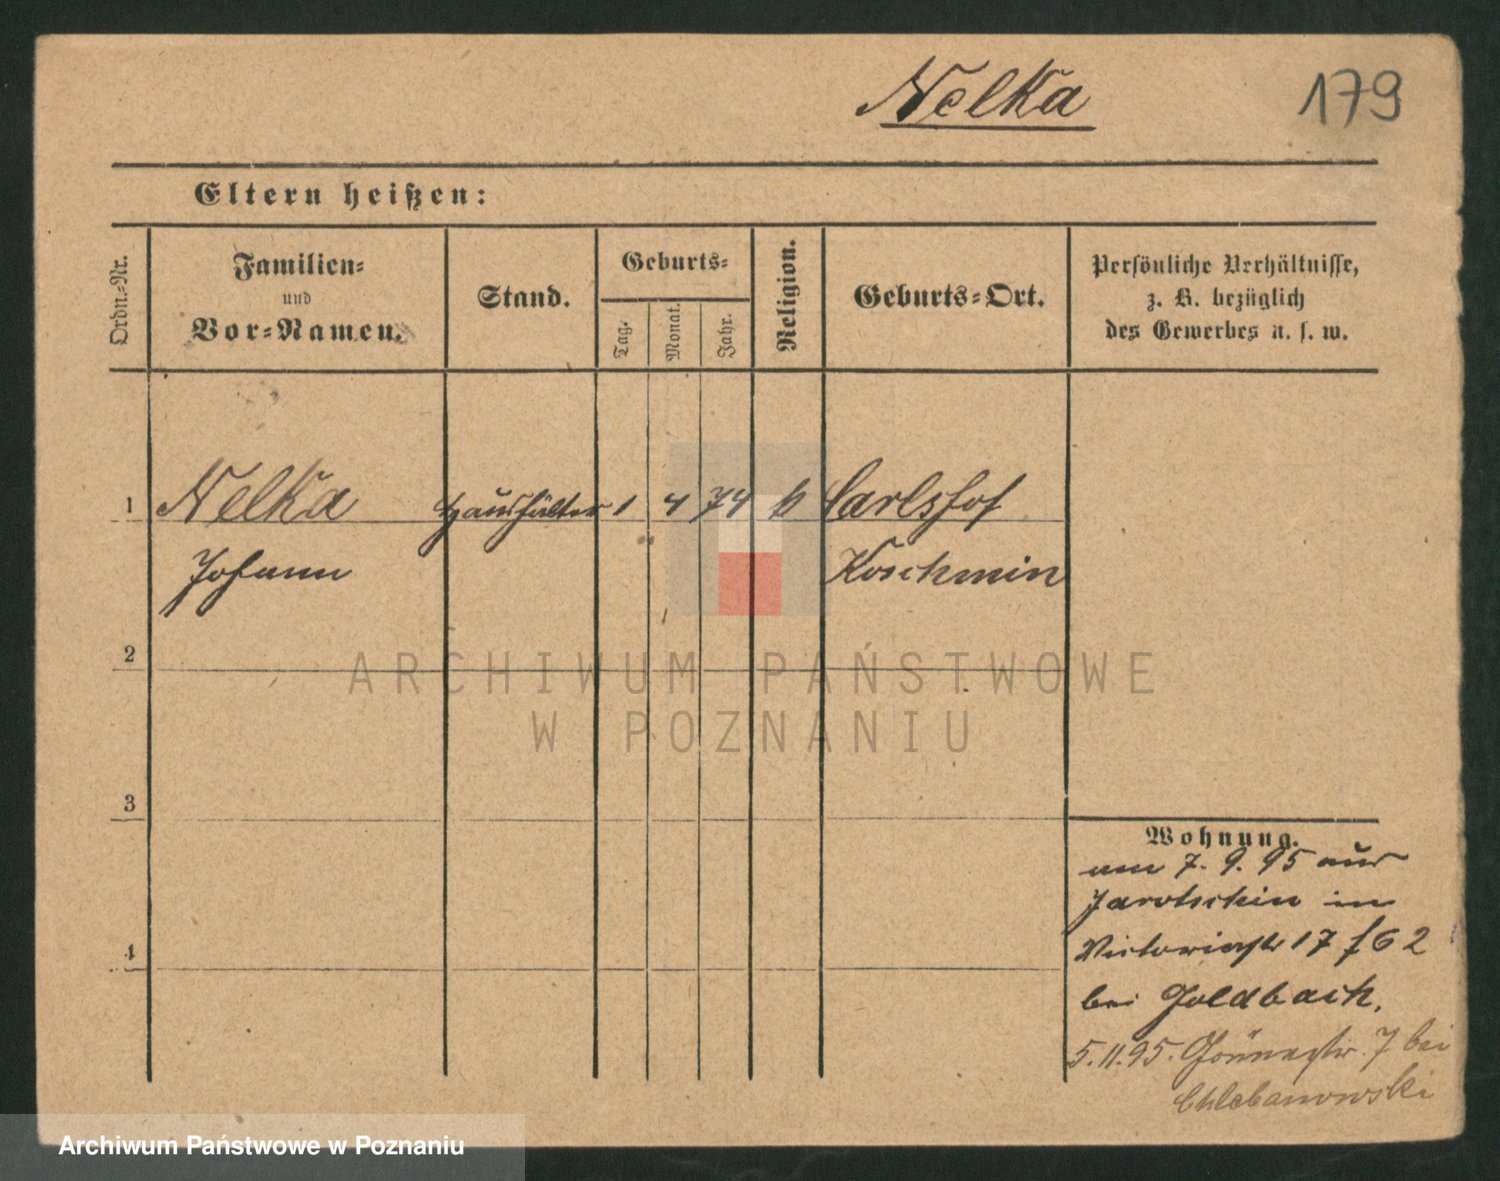 Nelka
179
Eltern heißen:
Ordn.-Nr.
Familien-
und
Vor-Namen.
Stand.
Geburts-
Tag.
Monat.
Jahr.
Religion.
Geburts-Ort.
Persönliche Verhältnisse,
z. B. bezüglich
des Gewerbes u. s. w.
1 Nelka Haushälter 1 4 74 k Carlshof
Johann Koschmin
2
3
4
Wohnung.
am 7. 9. 95 aus
Jarotschin in
Victoriastr 17
bei Goldbach.
5.11.95. 7 bei
Chlebanowski
ARCHIWUM PAŃSTWOWE
W POZNANIU
Archiwum Państwowe w Poznaniu